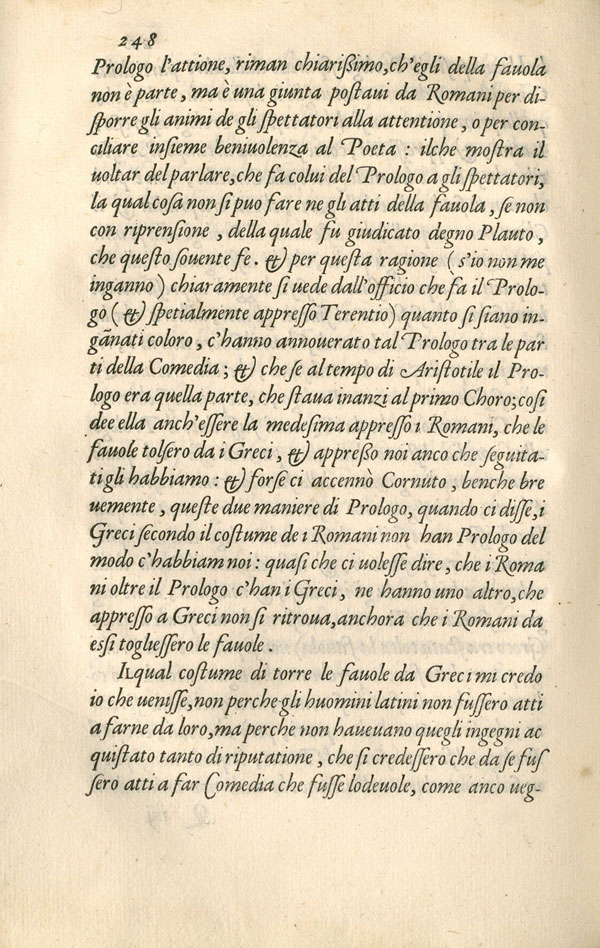 248
Prologo l'attione, riman chiarißimo, ch'egli della fauola
non è parte, ma è una giunta postaui da Romani per di-
sporre gli animi de gli spettatori alla attentione, o per con-
ciliare insieme beniuolenza al Poeta : ilche mostra il
uoltar del parlare, che fa colui del Prologo a gli spettatori,
la qual cosa non si puo fare ne gli atti della fauola, se non
con riprensione, della quale fu giudicato degno Plauto,
che questo souente fe. & per questa ragione ( s'io non me
inganno ) chiaramente si uede dall'officio che fa il Prolo-
go ( & spetialmente appresso Terentio) quanto si siano in-
gãnati coloro, c'hanno annouerato tal Prologo tra le par
ti della Comedia ; & che se al tempo di Aristotile il Pro-
logo era quella parte, che staua inanzi al primo Choro; cosi
dee ella anch'essere la medesima appresso i Romani, che le
fauole tolsero da i Greci, & appreßo noi anco che seguita-
ti gli habbiamo : & forse ci accennò Cornuto, benche bre
uemente, queste due maniere di Prologo, quando ci disse, i
Greci secondo il costume de i Romani non han Prologo del
modo c'habbiam noi : quasi che ci uolesse dire, che i Roma
ni oltre il Prologo c'han i Greci, ne hanno uno altro, che
appresso a Greci non si ritroua, anchora che i Romani da
essi togliessero le fauole.
ILqual costume di torre le fauole da Greci mi credo
io che uenisse, non perche gli huomini latini non fussero atti
a farne da loro, ma perche non haueuano quegli ingegni ac
quistato tanto di riputatione, che si credessero che da se fus
sero atti a far Comedia che fusse lodeuole, come anco ueg-